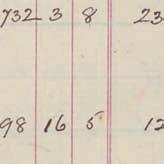 732 3 8 23
98 16 5 12